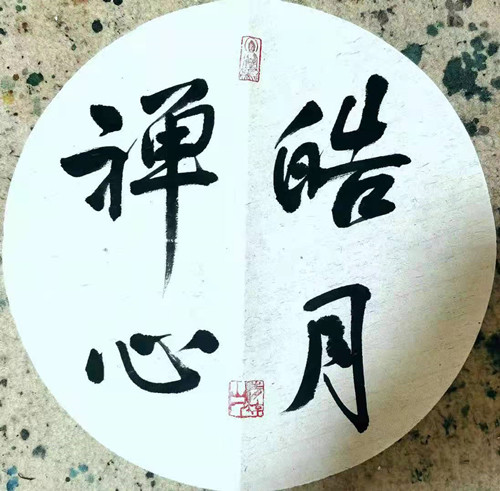 皓月
禅心